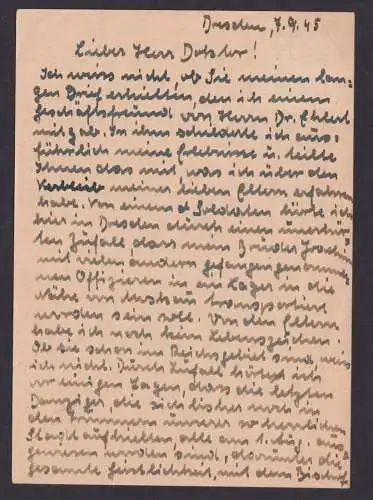 Dresden, 7.9.45
Lieber Herr Doktor!
Ich weiss nicht, ob Sie meinen lan-
gen Brief erhielten, den ich einem
Geschäftsfreund von Herrn Dr. Ehlert
mitgab. In ihm schilderte ich aus-
führlich meine Erlebnisse u. teilte
Ihnen das mit, was ich über den
Verbleib meiner lieben Eltern erfahren
habe. Von einem Soldaten hörte ich
hier in Dresden durch einen unerhör-
ten Zufall, dass mein Bruder Joachim
mit vielen andern gefangengenomme-
nen Offizieren in ein Lager in die
Nähe von transportiert
worden sein soll. Von den Eltern
habe ich noch kein Lebenszeichen.
Ob sie schon im Reichsgebiet sind weiss
ich nicht. Durch Zufall hörte ich
vor einigen Tagen, dass die letzten
Danziger, die sich bisher noch in
den Trümmern unserer so herrlichen
Stadt aufhielten, alle am 1. Aug. aus-
gewiesen worden sind, darunter die
gesamte Geistlichkeit, mit dem Bischof